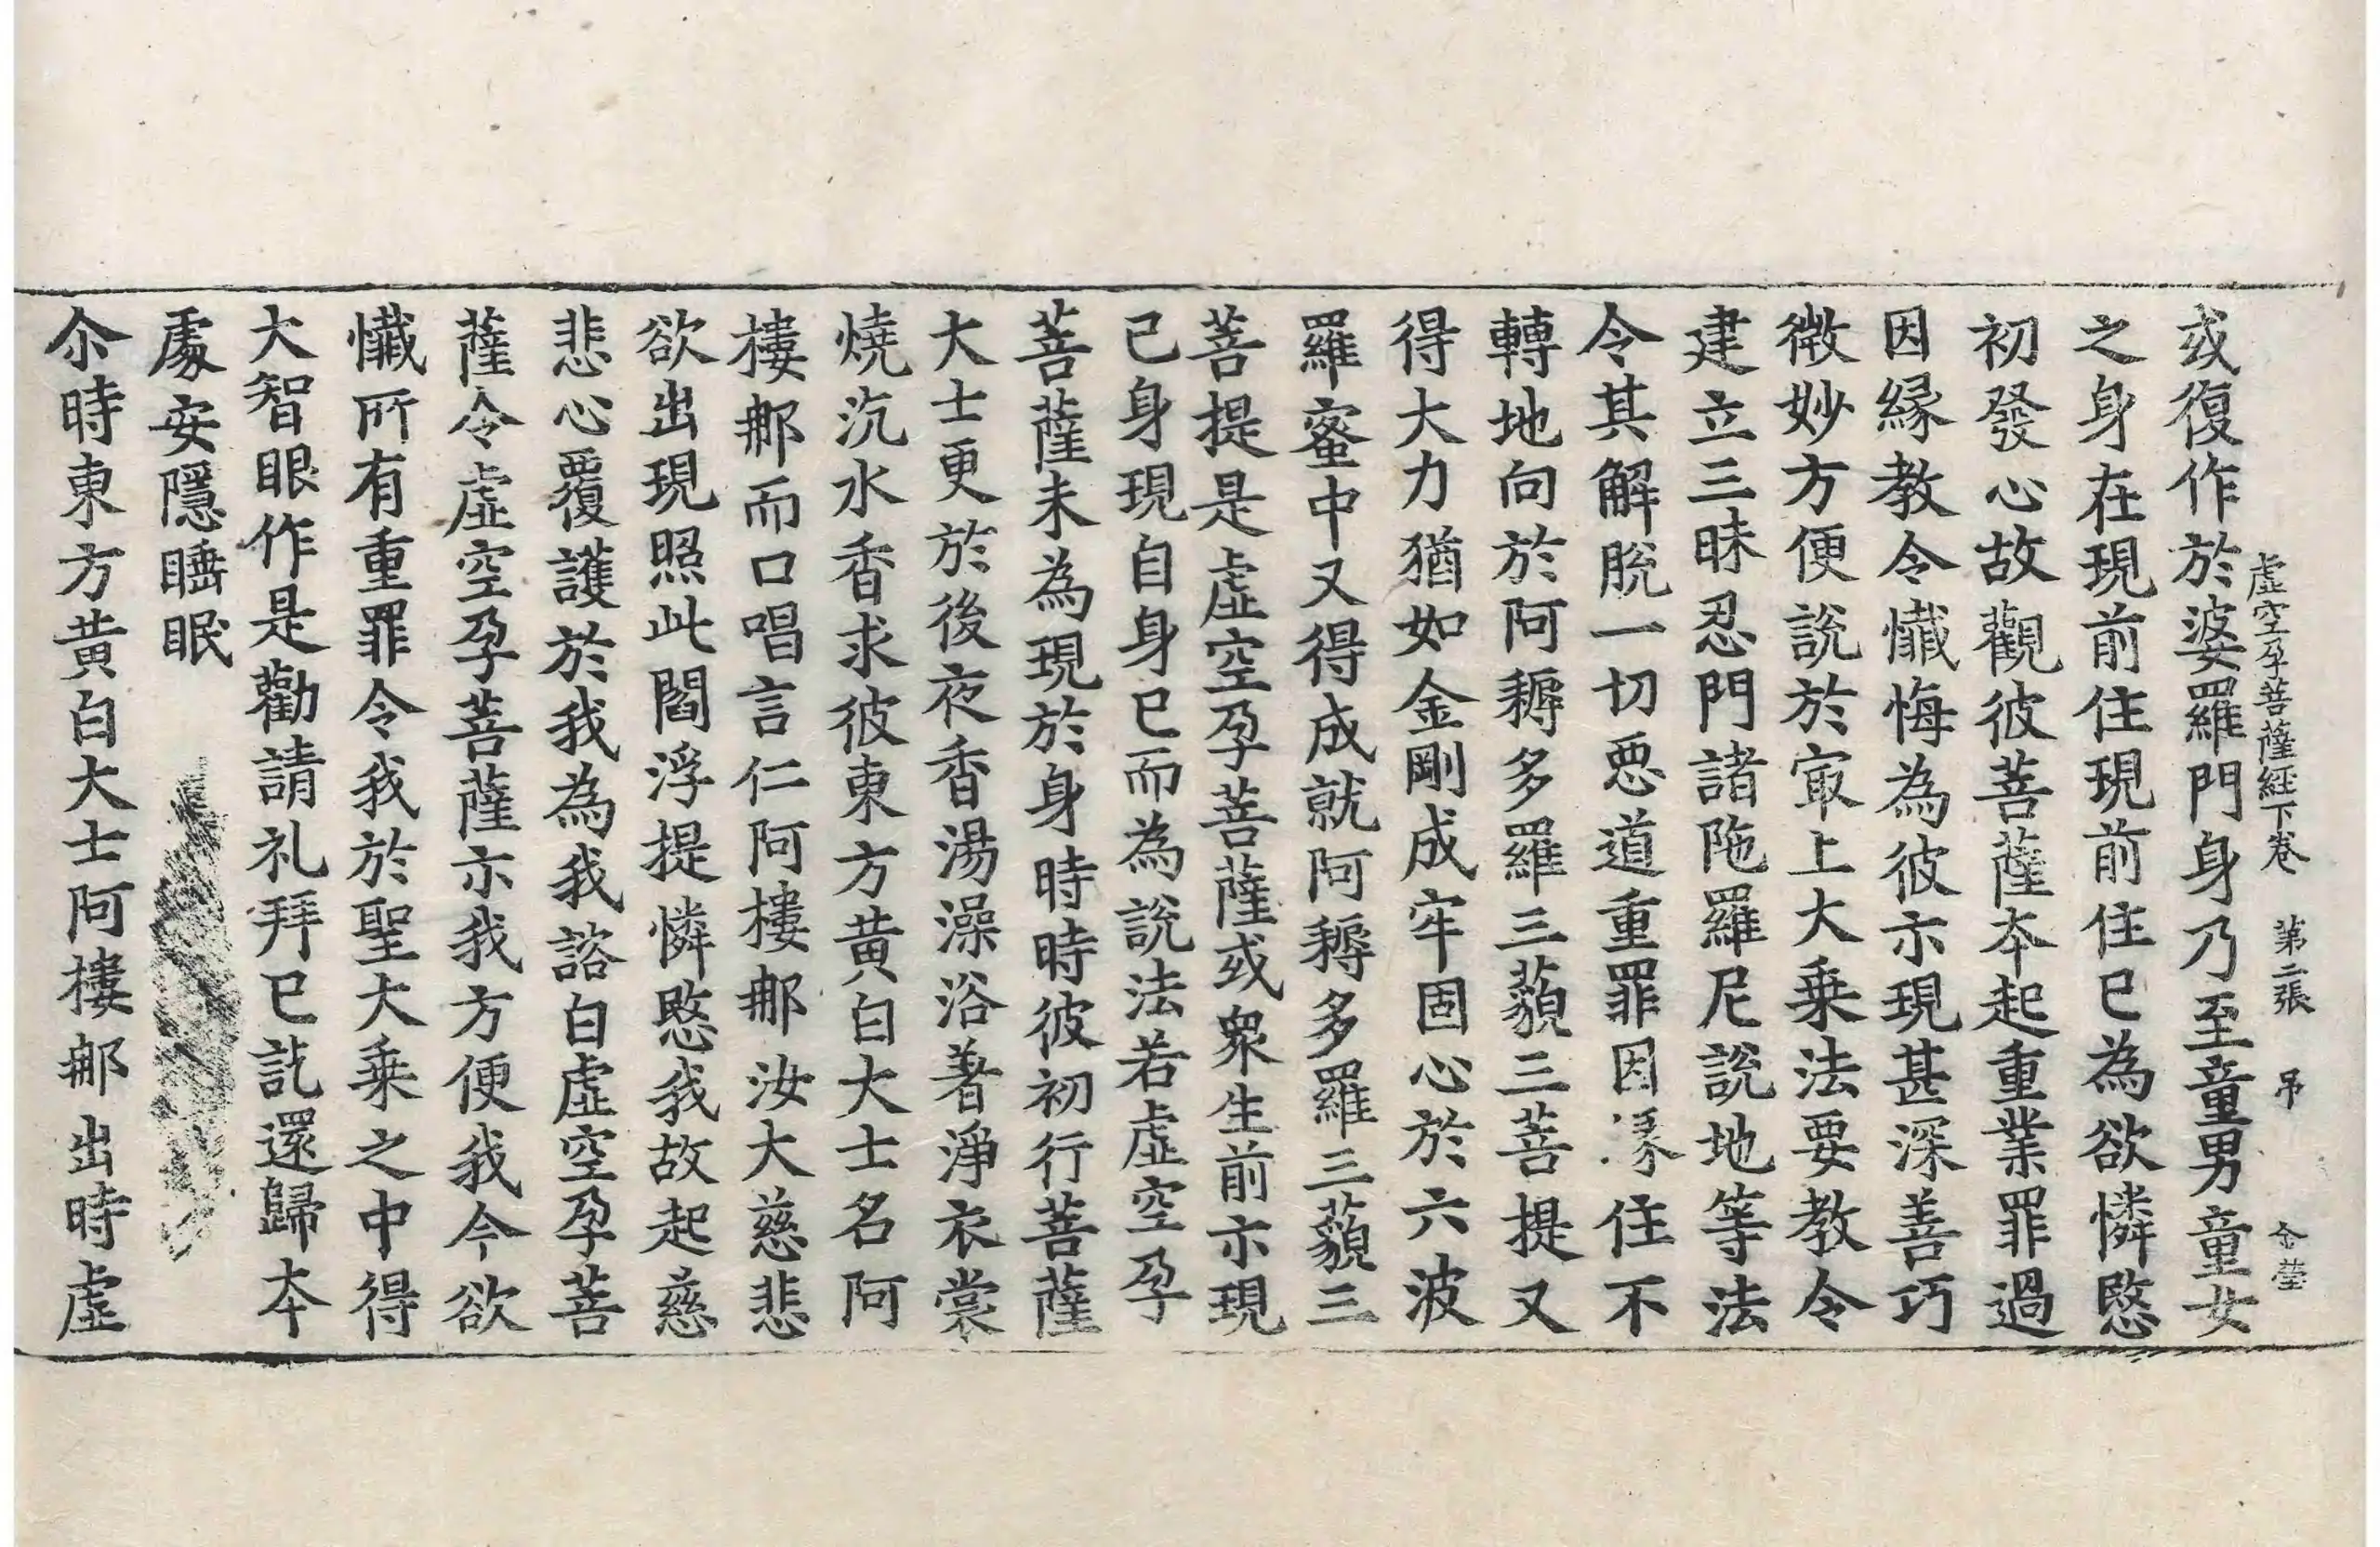 虛空孕菩薩經下卷 第二張 吊 金瑩
或復作於婆羅門身乃至童男童女
之身在現前住現前住已為欲憐愍
初發心故觀彼菩薩本起重業罪過
因緣教令懺悔為彼示現甚深善巧
微妙方便說於㝡上大乗法要教令
建立三昧忍門諸陁羅尼說地等法
令其解脫一切惡道重罪因緣住不
轉地向於阿耨多羅三藐三菩提又
得大力猶如金剛成牢固心於六波
羅蜜中又得成就阿耨多羅三藐三
菩提是虛空孕菩薩或衆生前示現
已身現自身已而為說法若虛空孕
菩薩未為現於身時時彼初行菩薩
大士更於後夜香湯澡浴著淨衣裳
燒沉水香求彼東方黃白大士名阿
樓郍而口唱言仁阿樓郍汝大慈悲
欲出現照此閻浮提憐愍我故起慈
悲心覆護於我為我諮白虛空孕菩
薩令虛空孕菩薩示我方便我今欲
懺所有重罪令我於聖大乗之中得
大智眼作是勸請礼拜已訖還歸本
處安隱睡眠
尒時東方黃白大士阿樓郍出時虛